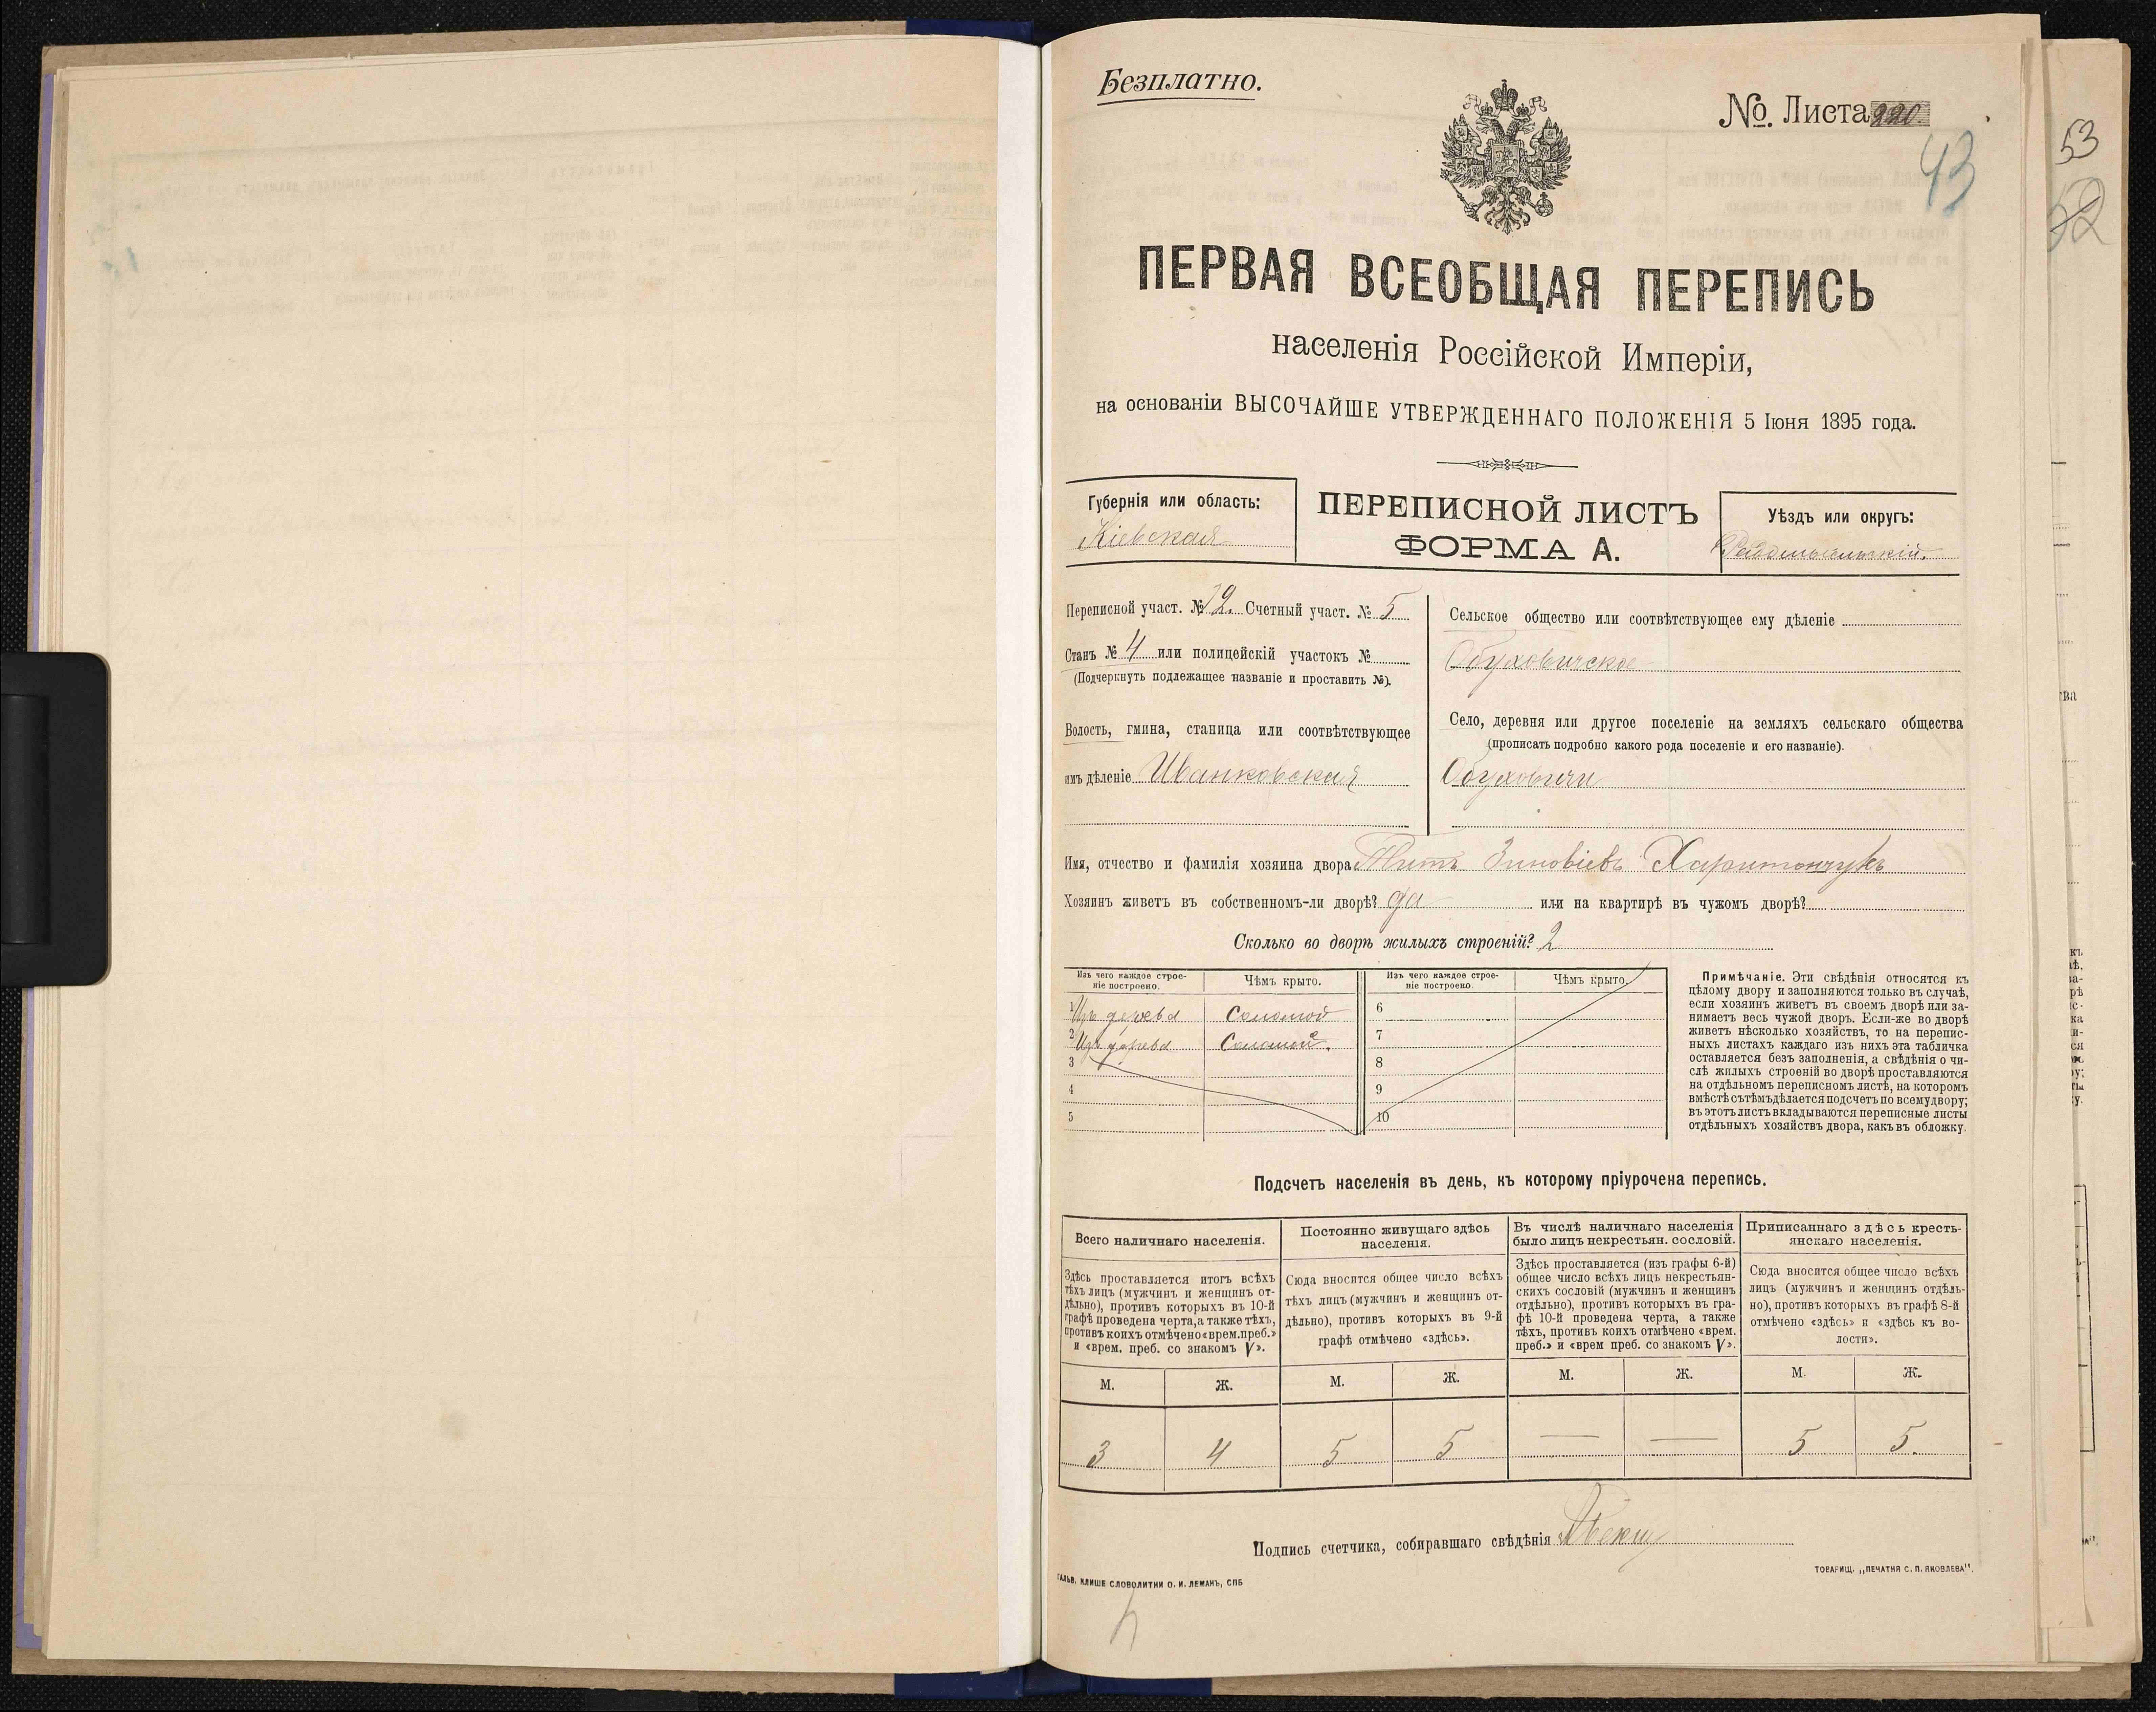 Безплатно.
№ Листа 220.
43
53
52
ПЕРВАЯ ВСЕОБЩАЯ ПЕРЕПИСЬ
населенія Россійской Имперіи,
на основаніи ВЫСОЧАЙШЕ УТВЕРЖДЕННАГО ПОЛОЖЕНІЯ 5 Іюня 1895 года.
Губернія или область:
Кіевская
ПЕРЕПИСНОЙ ЛИСТЪ
ФОРМА А.
Уѣздъ или округъ:
Радомысльскій.
Переписной участ. № 12. Счетный участ. № 5
Станъ № 4 или полицейскій участокъ №
(Подчеркнуть подлежащее названіе и проставить №).
Волость, гмина, станица или соотвѣтствующее
имъ дѣленіе Иванковская
Сельское общество или соотвѣтствующее ему дѣленіе
Обуховичское
Село, деревня или другое поселеніе на земляхъ сельскаго общества
(прописать подробно какого рода поселеніе и его названіе).
Обуховичи
Имя, отчество и фамилія хозяина двора Титъ Зиновіевъ Харитончукъ
Хозяинъ живетъ въ собственномъ-ли дворѣ? да или на квартирѣ въ чужомъ дворѣ?
Сколько во дворѣ жилыхъ строеній? 2
Изъ чего каждое строе-
ніе построено.
Чѣмъ крыто.
Изъ чего каждое строе-
ніе построено
Чѣмъ крыто.
1 Изъ дерева Соломой 6
2 Изъ дерева Соломой. 7
3 8
4 9
5 10
Примѣчаніе. Эти свѣдѣнія относятся къ
цѣлому двору и заполняются только въ случаѣ,
если хозяинъ живетъ въ своемъ дворѣ или за-
нимаетъ весь чужой дворъ. Если-же во дворѣ
живетъ нѣсколько хозяйствъ, то на перепис-
ныхъ листахъ каждаго изъ нихъ эта табличка
оставляется безъ заполненія, а свѣдѣнія о чи-
слѣ жилыхъ строеній во дворѣ проставляются
на отдѣльномъ переписномъ листѣ, на которомъ
вмѣстѣ сътѣмъ дѣлается подсчетъ по всему двору;
въ этотъ листъ вкладываются переписные листы
отдѣльныхъ хозяйствъ двора, какъ въ обложку.
Подсчетъ населенія въ день, къ которому пріурочена перепись.
Всего наличнаго населенія.
Здѣсь проставляется итогъ всѣхъ
тѣхъ лицъ (мужчинъ и женщинъ от-
дѣльно), противъ которыхъ въ 10-й
графѣ проведена черта, а также тѣхъ,
противъ коихъ отмѣчено «врем. преб.»
и «врем. преб. со знакомъ V».
Постоянно живущаго здѣсь
населенія.
Сюда вносится общее число всѣхъ
тѣхъ лицъ (мужчинъ и женщинъ от-
дѣльно), противъ которыхъ въ 9-й
графѣ отмѣчено «здѣсь».
Въ числѣ наличнаго населенія
было лицъ некрестьян. сословій.
Здѣсь проставляется (изъ графы 6-й)
общее число всѣхъ лицъ некрестьян-
скихъ сословій (мужчинъ и женщинъ
отдѣльно), противъ которыхъ въ гра-
фѣ 10-й проведена черта, а также
тѣхъ, противъ коихъ отмѣчено «врем.
преб.» и «врем преб. со знакомъ V».
Приписаннаго здѣсь кресть-
янскаго населенія.
Сюда вносится общее число всѣхъ
лицъ (мужчинъ и женщинъ отдѣль-
но), противъ которыхъ въ графѣ 8-й
отмѣчено «здѣсь» и «здѣсь къ во-
лости».
М. Ж. М. Ж. М. Ж. М. Ж.
3 4 5 5 — — 5 5.
Подпись счетчика, собиравшаго свѣдѣнія
ГАЛЬВ. КЛИШЕ СЛОВОЛИТНИ О. И. ЛЕМАНЪ, СПБ
ТОВАРИЩ. „ПЕЧАТНЯ С. П. ЯКОВЛЕВА".